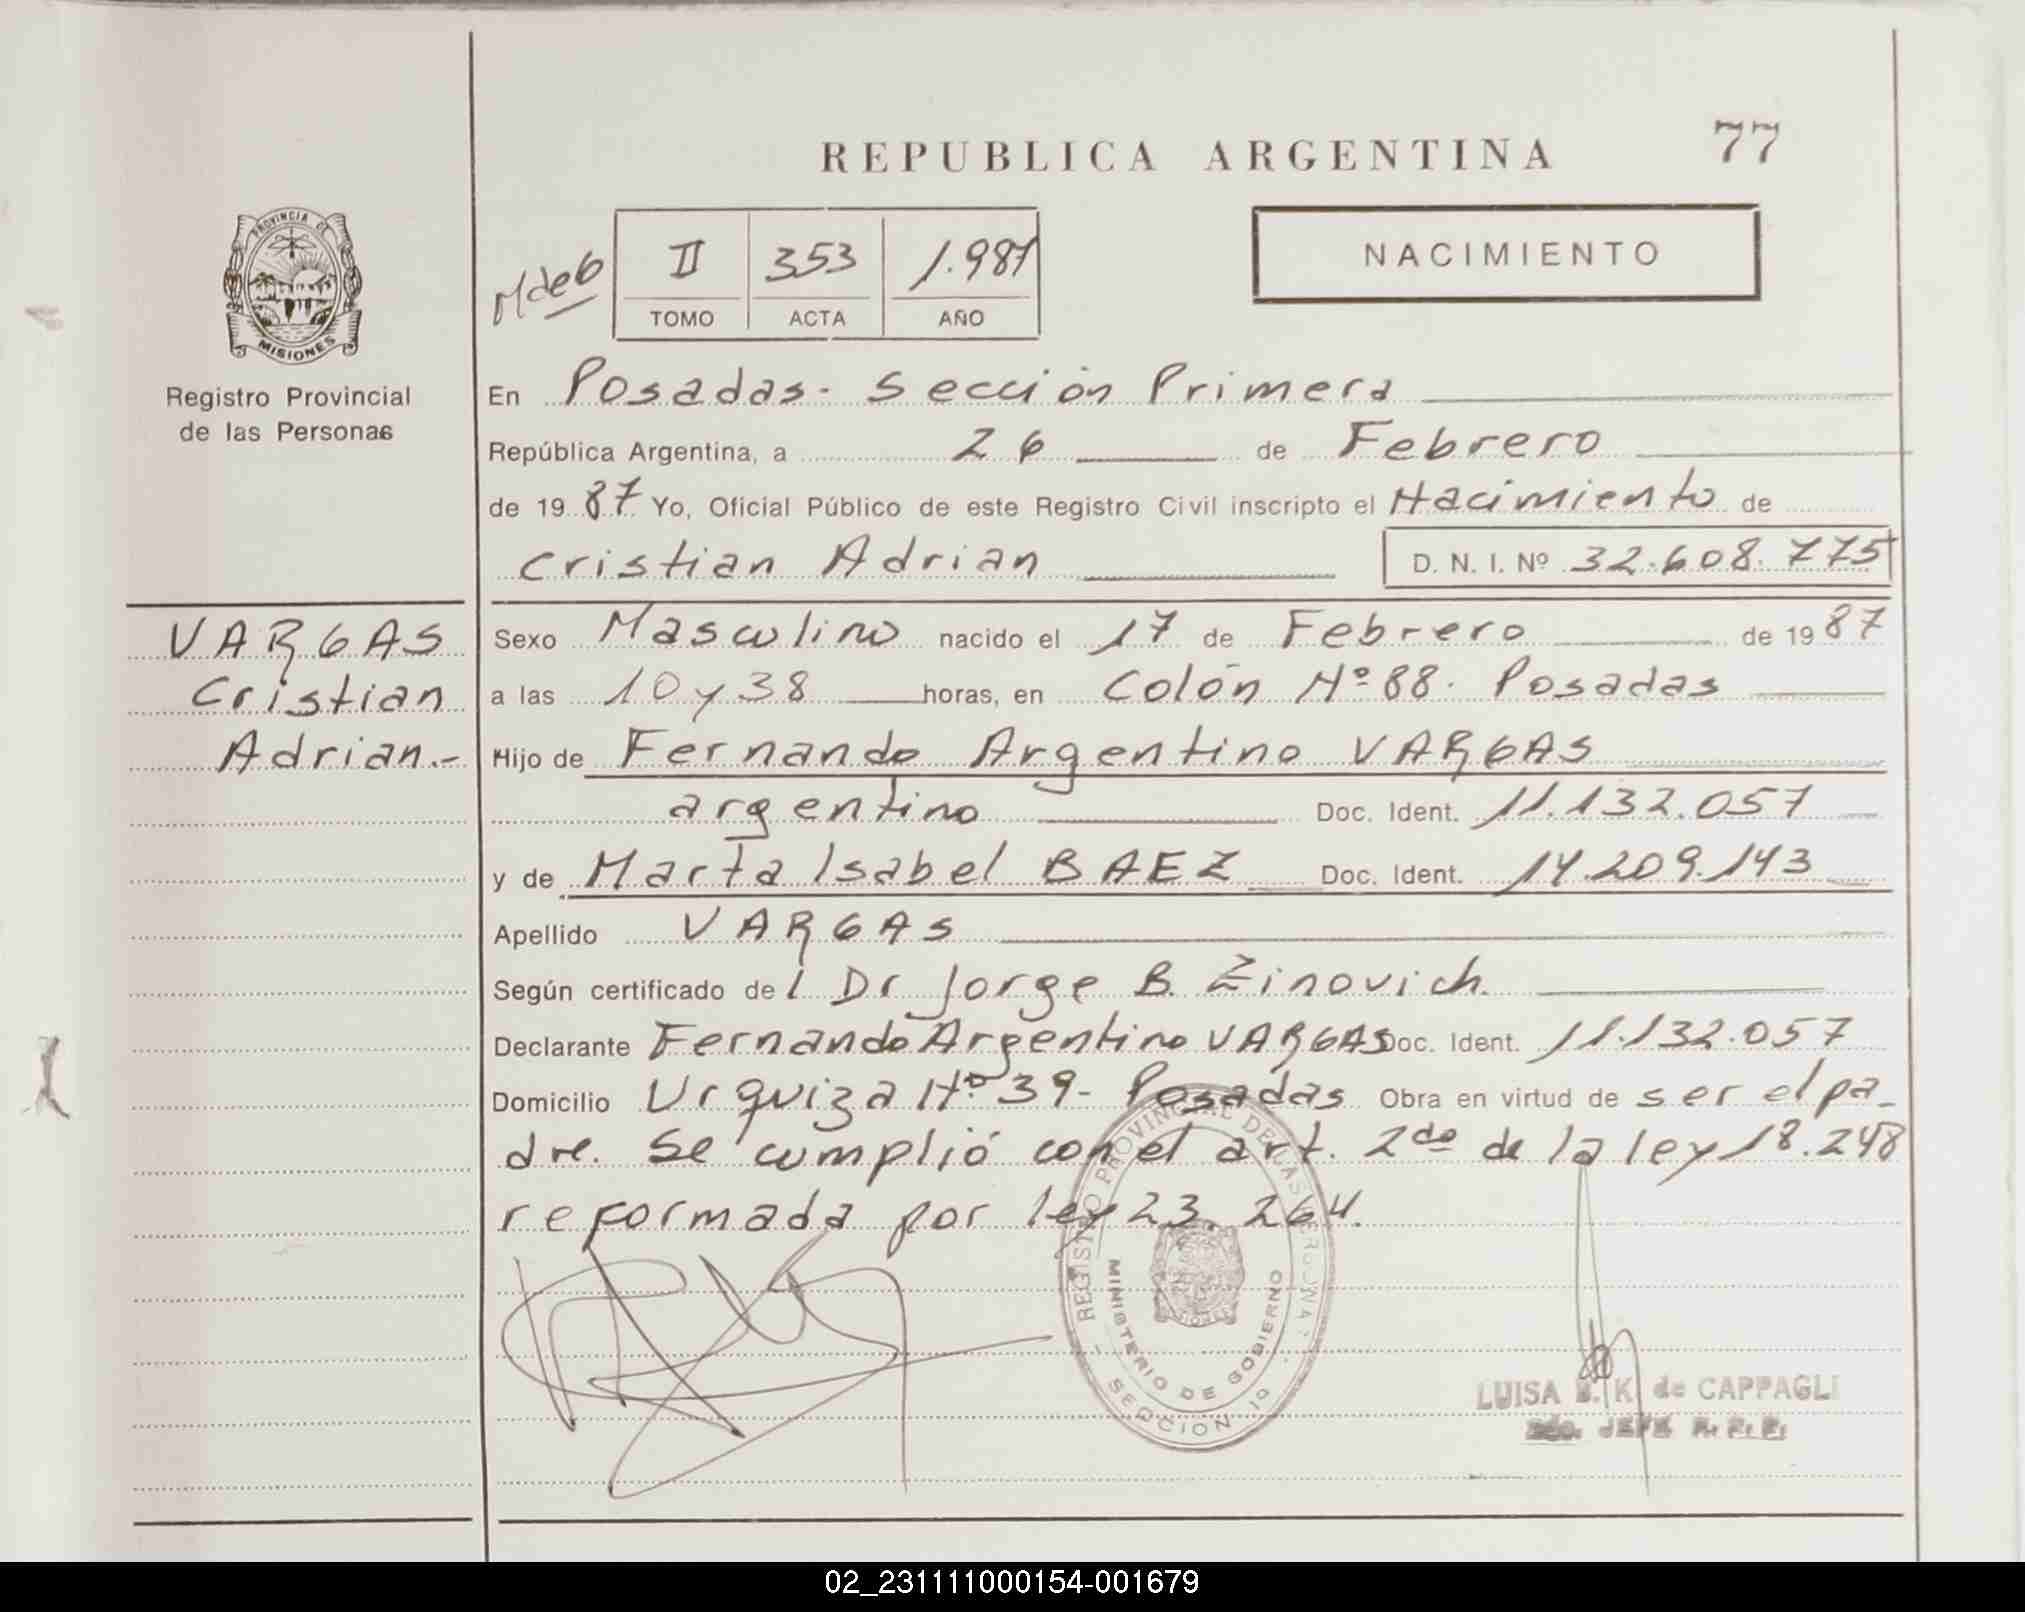 REPUBLICA ARGENTINA
77
PROVINCIA DE
MISIONES
Registro Provincial
de las Personas
II 353 1.987
TOMO ACTA AÑO
NACIMIENTO
En Posadas - Sección Primera
República Argentina, a 26 de Febrero
de 1987 Yo, Oficial Público de este Registro Civil inscripto el Nacimiento de
Cristian Adrian D. N. I. Nº 32.608.775
VARGAS
Cristian
Adrian.-
Sexo Masculino nacido el 17 de Febrero de 1987
a las 10 y 38 horas, en Colón Nº 88. Posadas
Hijo de Fernando Argentino VARGAS
argentino Doc. Ident. 11.132.057
y de Marta Isabel BAEZ Doc. Ident. 14.209.143
Apellido VARGAS
Según certificado del Dr Jorge B. Zinovich.
Declarante Fernando Argentino VARGAS Doc. Ident. 11.132.057
Domicilio Urquiza Nº 39 - Posadas Obra en virtud de ser el pa-
dre. Se cumplió con el art. 2do de la ley 18.248
reformada por ley 23.264.
REGISTRO PROVINCIAL DE LAS
MINISTERIO DE GOBIERNO
SECCION 1º
LUISA K. de CAPPAGLI
2do. JEFE
02_231111000154-001679